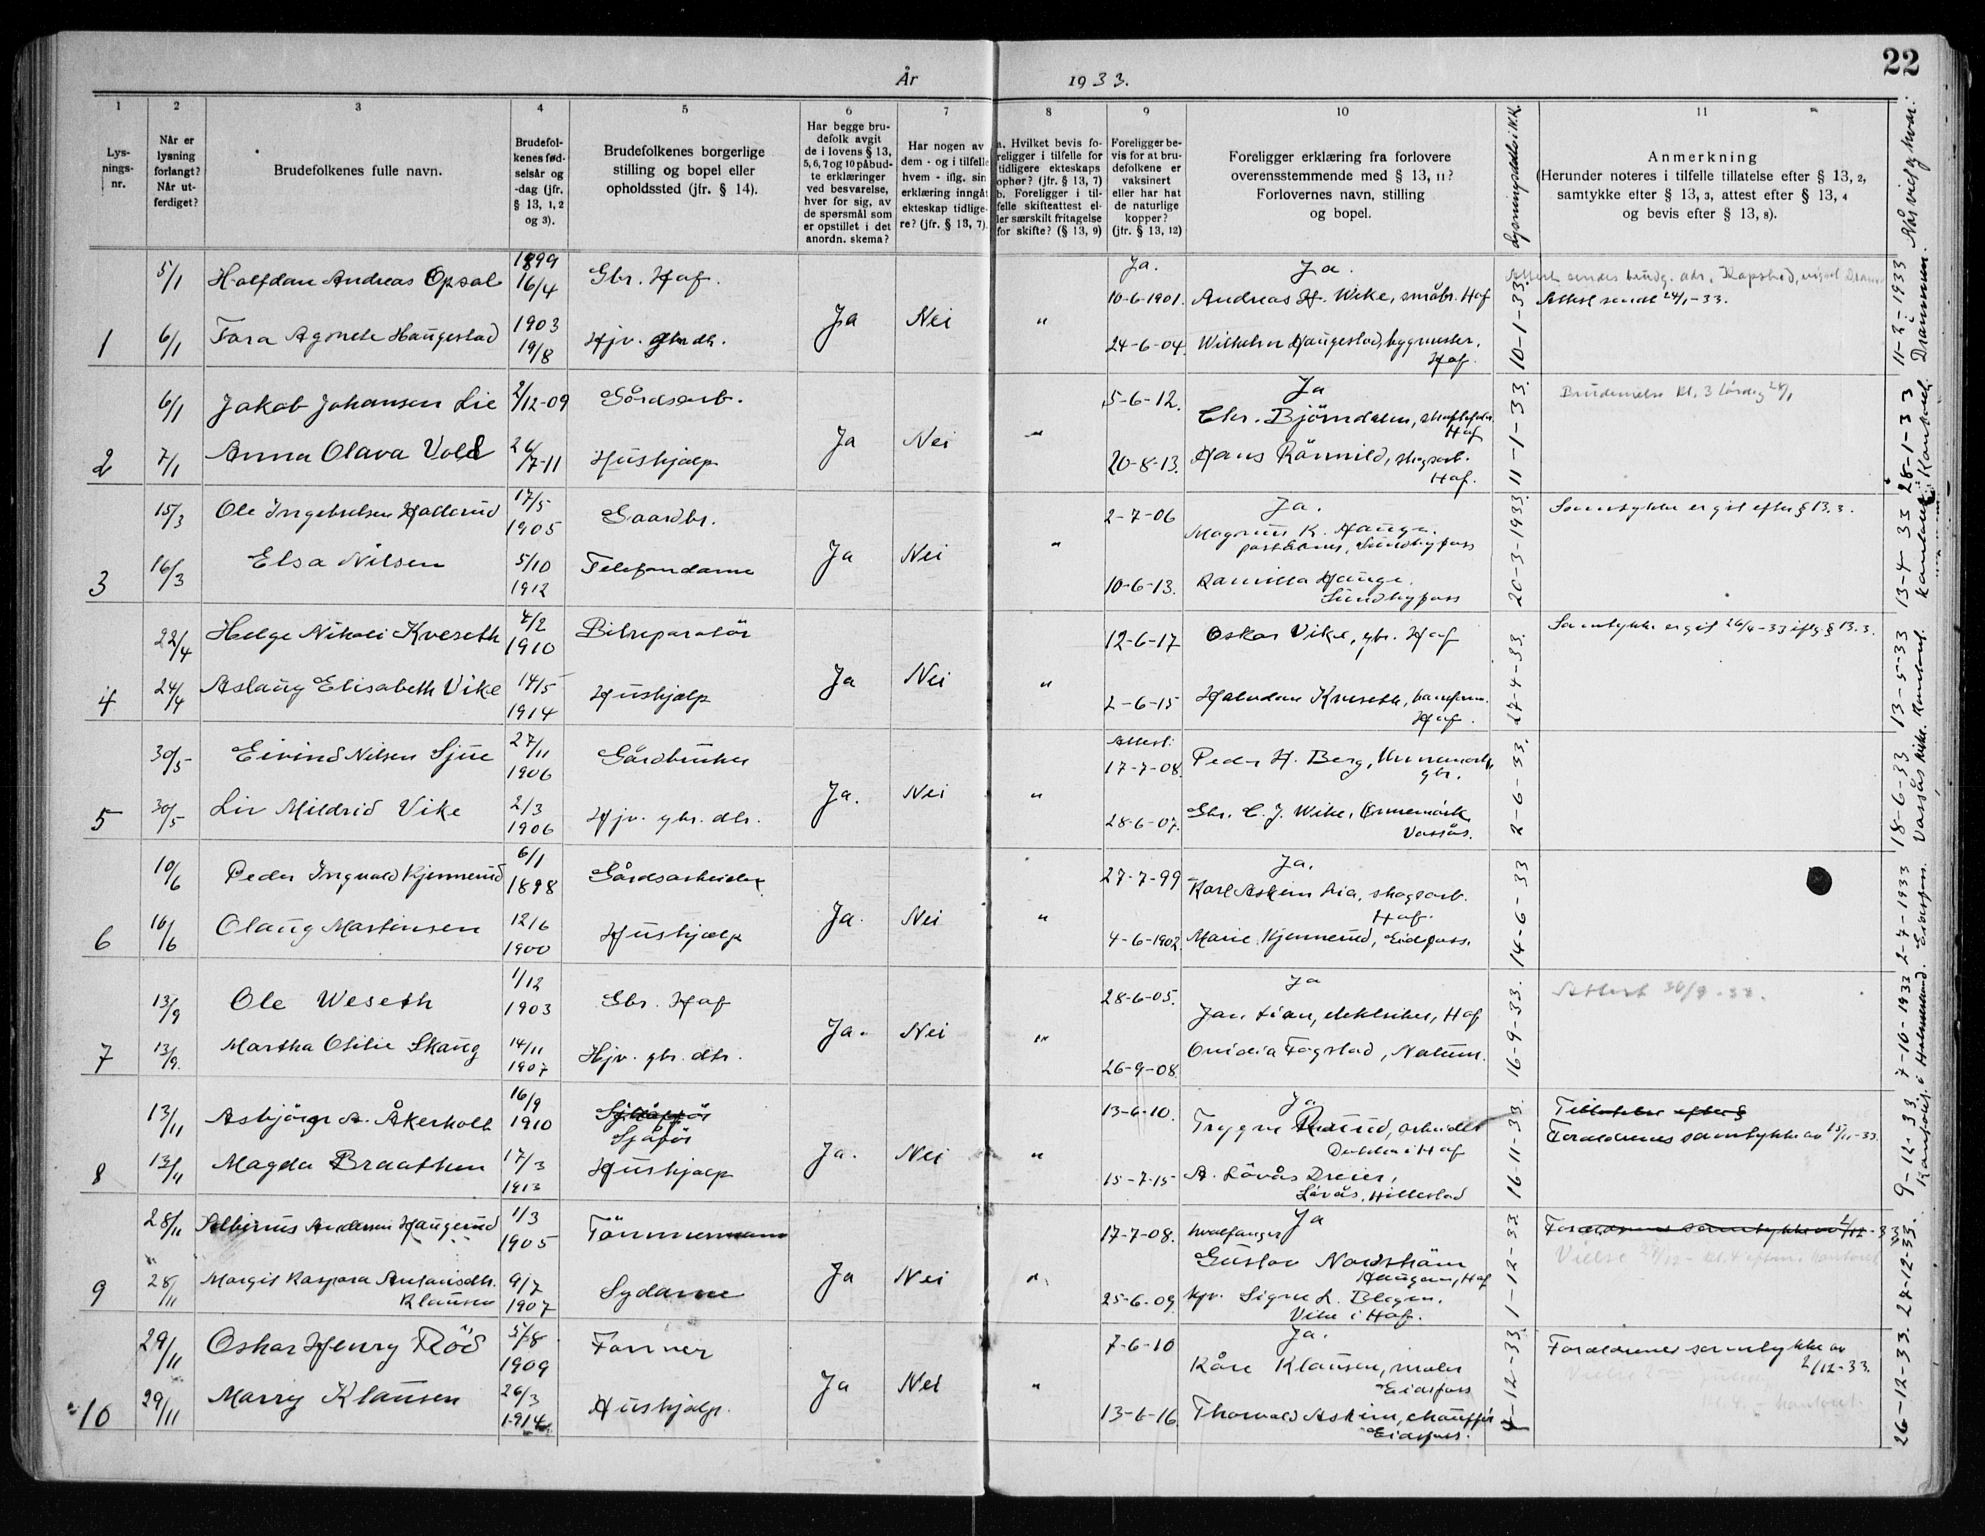 22
År 1933.
1 2 3 4 5 6 7 8 9 10 11
Lysningsnr.
Når er lysning forlangt? Når utferdiget?
Brudefolkenes fulle navn.
Brudefolkenes fødselsår og -dag (jfr. § 13, 1, 2 og 3).
Brudefolkenes borgerlige stilling og bopel eller opholdssted (jfr. § 14).
Har begge brudefolk avgit de i lovens § 13, 5, 6, 7 og 10 påbudte erklæringer ved besvarelse, hver for sig, av de spørsmål som er opstillet i det anordn. skema?
Har nogen av dem - og i tilfelle hvem - iflg. sin erklæring inngått ekteskap tidligere? (jfr. § 13, 7).
a. Hvilket bevis foreligger i tilfelle for tidligere ekteskaps ophør? (jfr. § 13, 7) b. Foreligger i tilfelle skifteattest eller særskilt fritagelse for skifte? (§ 13, 9)
Foreligger bevis for at brudefolkene er vaksinert eller har hat de naturlige kopper? (jfr. § 13, 12)
Foreligger erklæring fra forlovere overensstemmende med § 13, 11? Forlovernes navn, stilling og bopel.
Anmerkning (Herunder noteres i tilfelle tillatelse efter § 13, 2, samtykke efter § 13, 3, attest efter § 13, 4 og bevis efter § 13, 8).
Når viet og hvor.
5/1 Halfdan Andreas Opsal 1899 16/4 Gbr. Hof. Ja. Ja.
10-6-1901. Andreas H. Wike, småbr. Hof
Attest sendt 24/1-33.
1 6/1 Tora Agnete Haugestad 1903 19/8 Hjv. gbr. dtr. Ja Nei "
24-6-04. Wilhelm Haugestad, bygmester. Hof.
10-1-33. 11-2-1933 Drammen.
6/1 Jakob Johansen Lie 2/12-09 Gårdsarb. 5-6-12. Ja
Chr. Bjørndalen, Hof
Brudevielse kl. 3 lørdag 28/1
2 7/1 Anna Olava Vold 26/7-11 Hushjælp Ja Nei "
20-8-13. Hans Rønnild, skogsarb. Hof.
11-1-33. 28-1-33
15/3 Ole Ingebretsen Hallerud 17/5 1905 Gaardbr. 2-7-06 Ja.
Magnus K. Hauge. Sundbyfoss
Samtykke er git efter § 13.3.
3 16/3 Elsa Nilsen 5/10 1912 Telefondame Ja Nei "
10-6-13. Kamilla Hauge. Sundbyfoss
20-3-1933. 13-4-33 Kontoret
22/4 Helge Nikolai Kveseth 4/2 1910 Bilreparatör 12-6-17 Oskar Vike, gbr. Hof
Samtykke er git 26/4-33 iflg. § 13.3.
4 24/4 Aslaug Elisabeth Vike 14/5 1914 Hushjælp Ja Nei "
2-6-15 Halvdan Kveseth, Hof.
27-4-33. 13-5-33 Kontoret.
30/5 Eivind Nilsen Sjue 27/11 1906 Gårdbruker Attest: 17-7-08. Peder H. Berg, gbr.
5 30/5 Liv Mildrid Vike 2/3 1906 Hjv. gbr. dtr. Ja. Nei "
28-6-07. Gbr. C. J. Wike, Vassås.
2-6-33. 18-6-33 Vassås kirke.
10/6 Peder Ingvald Kjennerud 6/1 1898 Gårdsarbeider 27-7-99 Ja.
Karl Askim Lia, skogsarb. Hof.
6 10/6 Olaug Martinsen 12/6 1900 Hushjælp Ja. Nei "
4-6-1902 Marie Kjennerud, Eidsfoss.
14-6-33 2-7-1933 Eidsfoss.
13/9 Ole Weseth 1/12 1903 Gbr. Hof 28-6-05. Ja
Jan Lian, elektriker, Hof
Attest 30/9-33.
7 13/9. Martha Otilie Skaug 14/11 1907 Hjv. gbr. dtr. Ja. Nei "
26-9-08. Ovidia Fogstad,
16-9-33. 7-10-1933 i Holmestrand.
13/11 Asbjørn A. Åkerholt 16/9 1910 Sjåfør 13-6-10. Ja
Trygve Rusund, arbeider i Hof
Foreldrenes samtykke av 15/11-33.
8 13/11 Magda Braathen 17/3 1913 Hushjælp Ja. Nei "
15-7-15 A. Løvås Dreier, Løvås, Hillestad
16-11-33. 9-12-33. Kontoret.
28/11 Andersen Haugerud 1/3 1905 Tömmermann 17-7-08. hvalfanger Ja
Gustav Nordström Haugan, Hof
Foreldrenes samtykke av 2/12-33
Vielse 24/12- kl. 4 efterm. Kontoret
9 28/11 Margit Kaspara Antonsdtr. Klausen 9/7 1907 Sydame Ja Nei "
25-6-09. hjv. Signe L. Blegen. Vike i Hof.
1-12-33 24-12-33.
29/11 Oskar Henry Röd 5/8 1909 Former 7-6-10 Ja.
Kåre Klausen, maler Eidsfoss
Foreldrenes samtykke av 2/12-33.
10 29/11 Marry Klausen 26/3 1914 Hushjælp. Ja Nei "
13-6-16. Thorvald Askim, chauffør Eidsfoss.
4-12-33. 26-12-33.